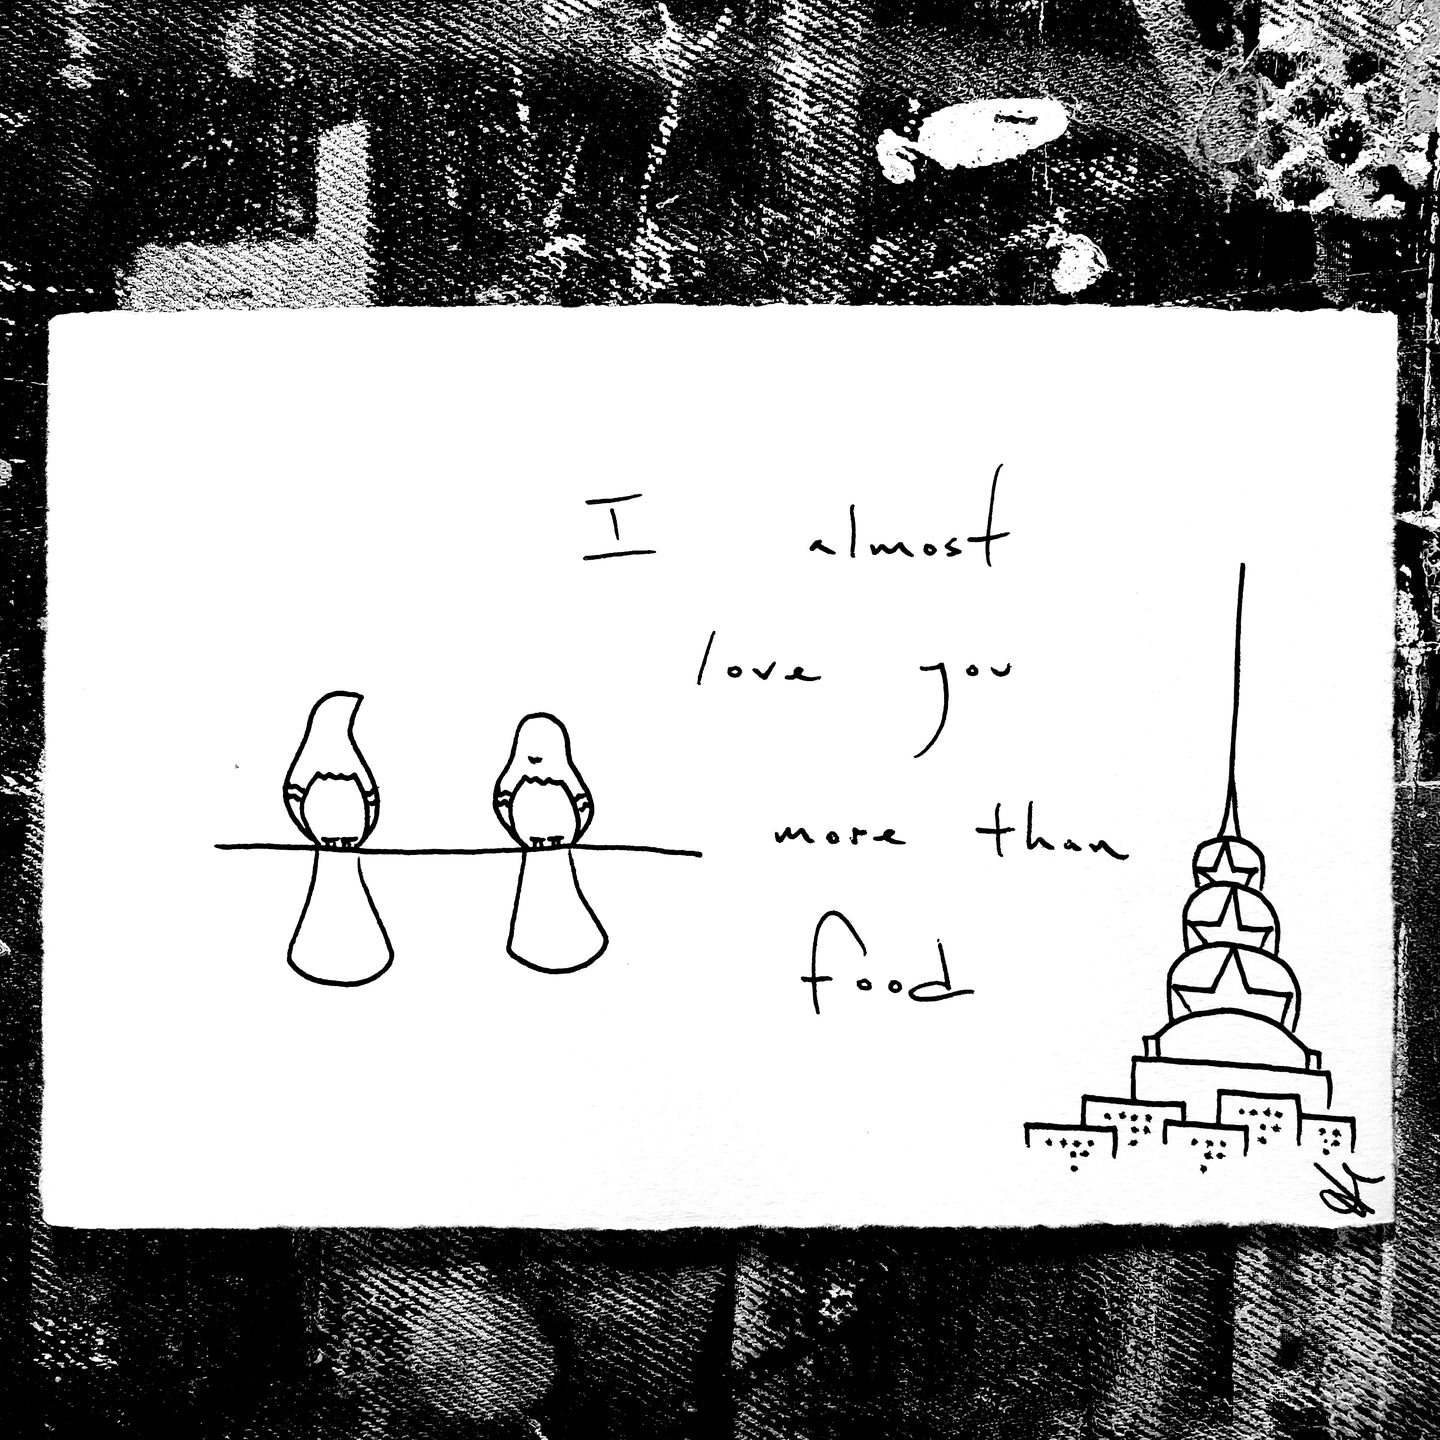 I almost
love you
more than
food